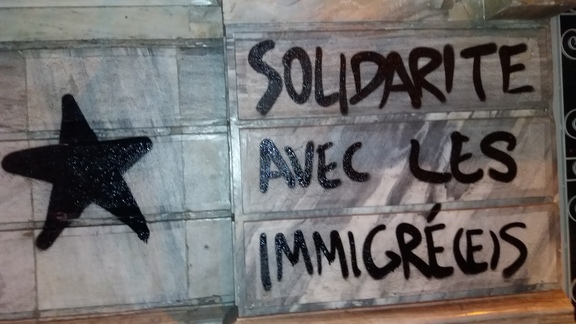 SOLIDARITE
AVEC LES
IMMIGRÉ(E)S